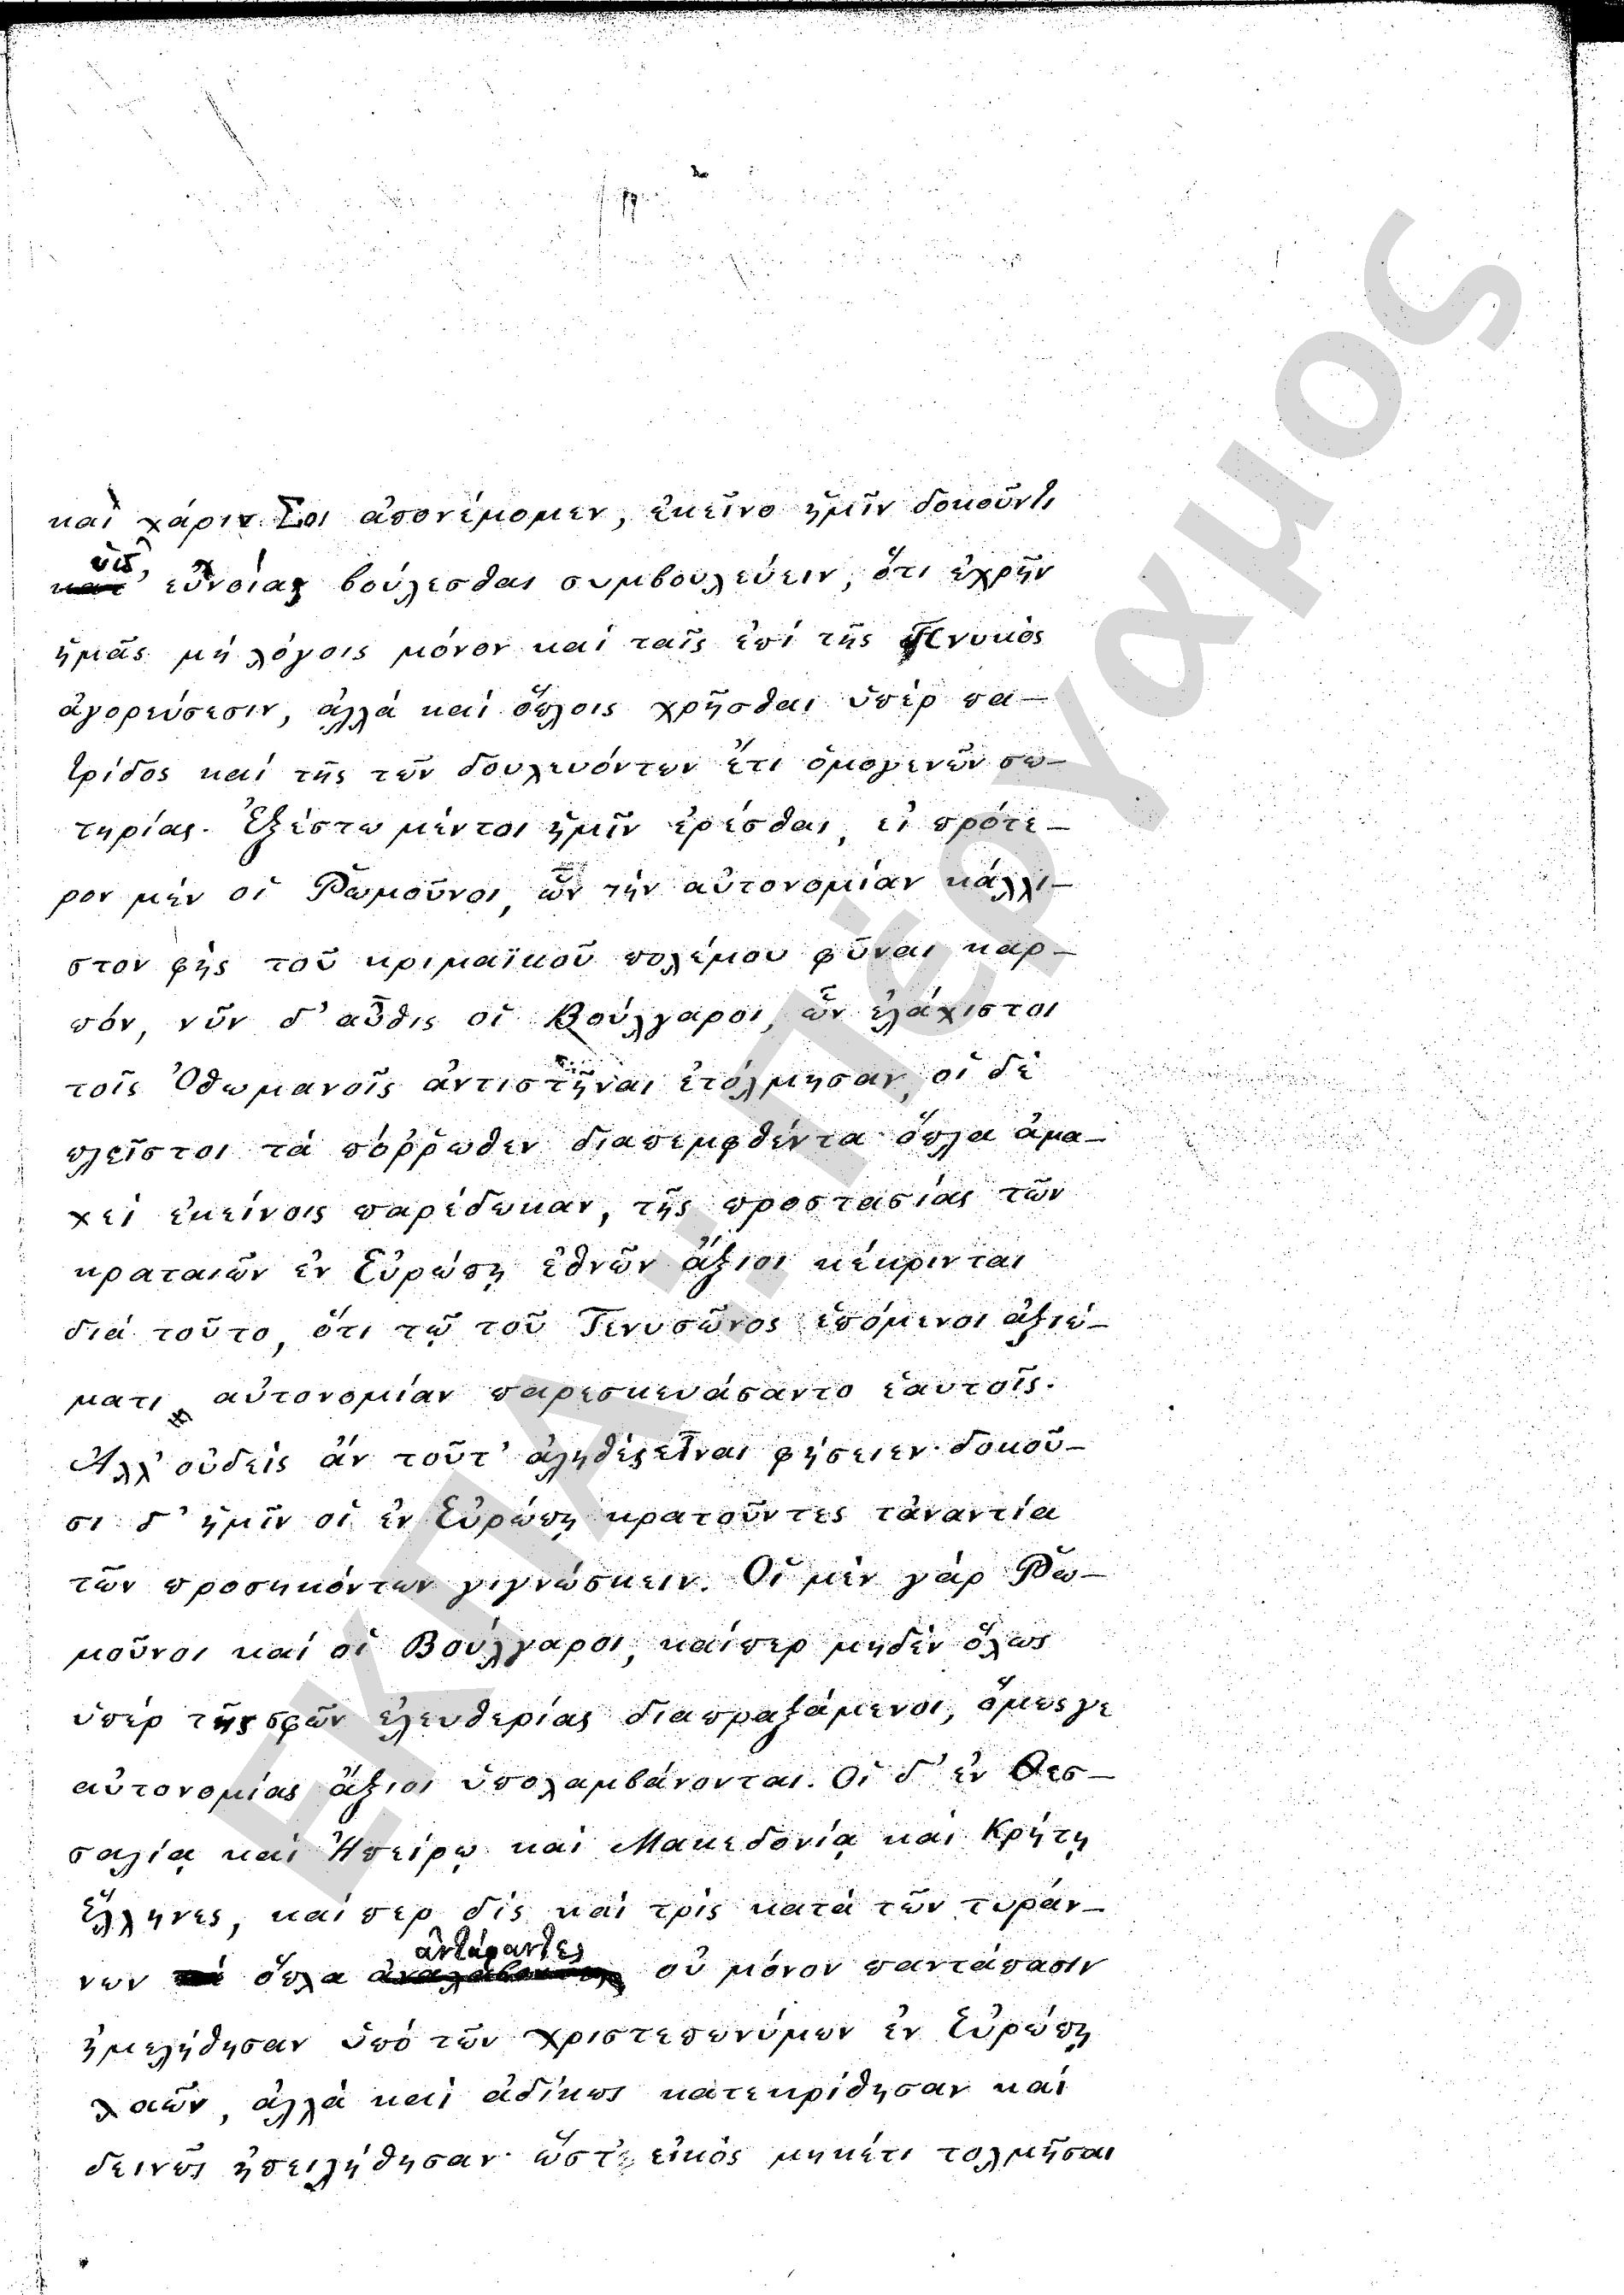 καὶ χάριν Σοι ἀπονέμομεν, ἐκεῖνο ἡμῖν δοκοῦντι
ὑπ' εὐνοίας βούλεσθαι συμβουλεύειν, ὅτι ἐχρῆν
ἡμᾶς μὴ λόγοις μόνον καὶ ταῖς ἐπὶ τῆς Πνυκὸς
ἀγορεύσεσιν, ἀλλὰ καὶ ὅπλοις χρῆσθαι ὑπὲρ πα-
τρίδος καὶ τῆς τῶν δουλευόντων ἔτι ὁμογενῶν σω-
τηρίας. Ἐξέστω μέντοι ἡμῖν ἐρέσθαι, εἰ πρότε-
ρον μὲν οἱ Ῥωμοῦνοι, ὧν τὴν αὐτονομίαν κάλλι-
στον φῂς τοῦ κριμαϊκοῦ πολέμου φῦναι καρ-
πόν, νῦν δ' αὖθις οἱ Βούλγαροι, ὧν ἐλάχιστοι
τοῖς Ὀθωμανοῖς ἀντιστῆναι ἐτόλμησαν, οἱ δὲ
πλεῖστοι τὰ πόῤῥωθεν διαπεμφθέντα ὅπλα ἀμα-
χεὶ ἐκείνοις παρέδωκαν, τῆς προστασίας τῶν
κραταιῶν ἐν Εὐρώπῃ ἐθνῶν ἄξιοι κέκρινται
διὰ τοῦτο, ὅτι τῷ τοῦ Τενυσῶνος ἑπόμενοι ἀξιώ-
ματι αὐτονομίαν παρεσκευάσαντο ἑαυτοῖς.
Ἀλλ' οὐδεὶς ἂν τοῦτ' ἀληθὲς εἶναι φήσειεν· δοκοῦ-
σι δ' ἡμῖν οἱ ἐν Εὐρώπῃ κρατοῦντες τἀναντία
τῶν προσηκόντων γιγνώσκειν. Οἱ μὲν γὰρ Ῥω-
μοῦνοι καὶ οἱ Βούλγαροι, καίπερ μηδὲν ὅλως
ὑπὲρ τῆς σφῶν ἐλευθερίας διαπραξάμενοι, ὅμως γε
αὐτονομίας ἄξιοι ὑπολαμβάνονται. Οἱ δ' ἐν Θεσ-
σαλίᾳ καὶ Ἠπείρῳ καὶ Μακεδονίᾳ καὶ Κρήτῃ
Ἕλληνες, καίπερ δὶς καὶ τρὶς κατὰ τῶν τυράν-
νων ὅπλα ἀντάραντες οὐ μόνον παντάπασιν
ἠμελήθησαν ὑπὸ τῶν χριστεπωνύμων ἐν Εὐρώπῃ
λαῶν, ἀλλὰ καὶ ἀδίκως κατεκρίθησαν καὶ
δεινῶς ἠπειλήθησαν· ὥστ' εἰκὸς μηκέτι τολμῆσαι
ΕΚΠΑ.:.Πέργαμος